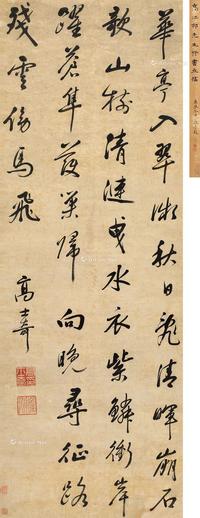 華亭入翠微秋日亂清暉崩石
欹山樹清漣曳水衣紫鱗衝岸
躍蒼隼護巢歸向晚尋征路
殘雲傍馬飛
高士奇